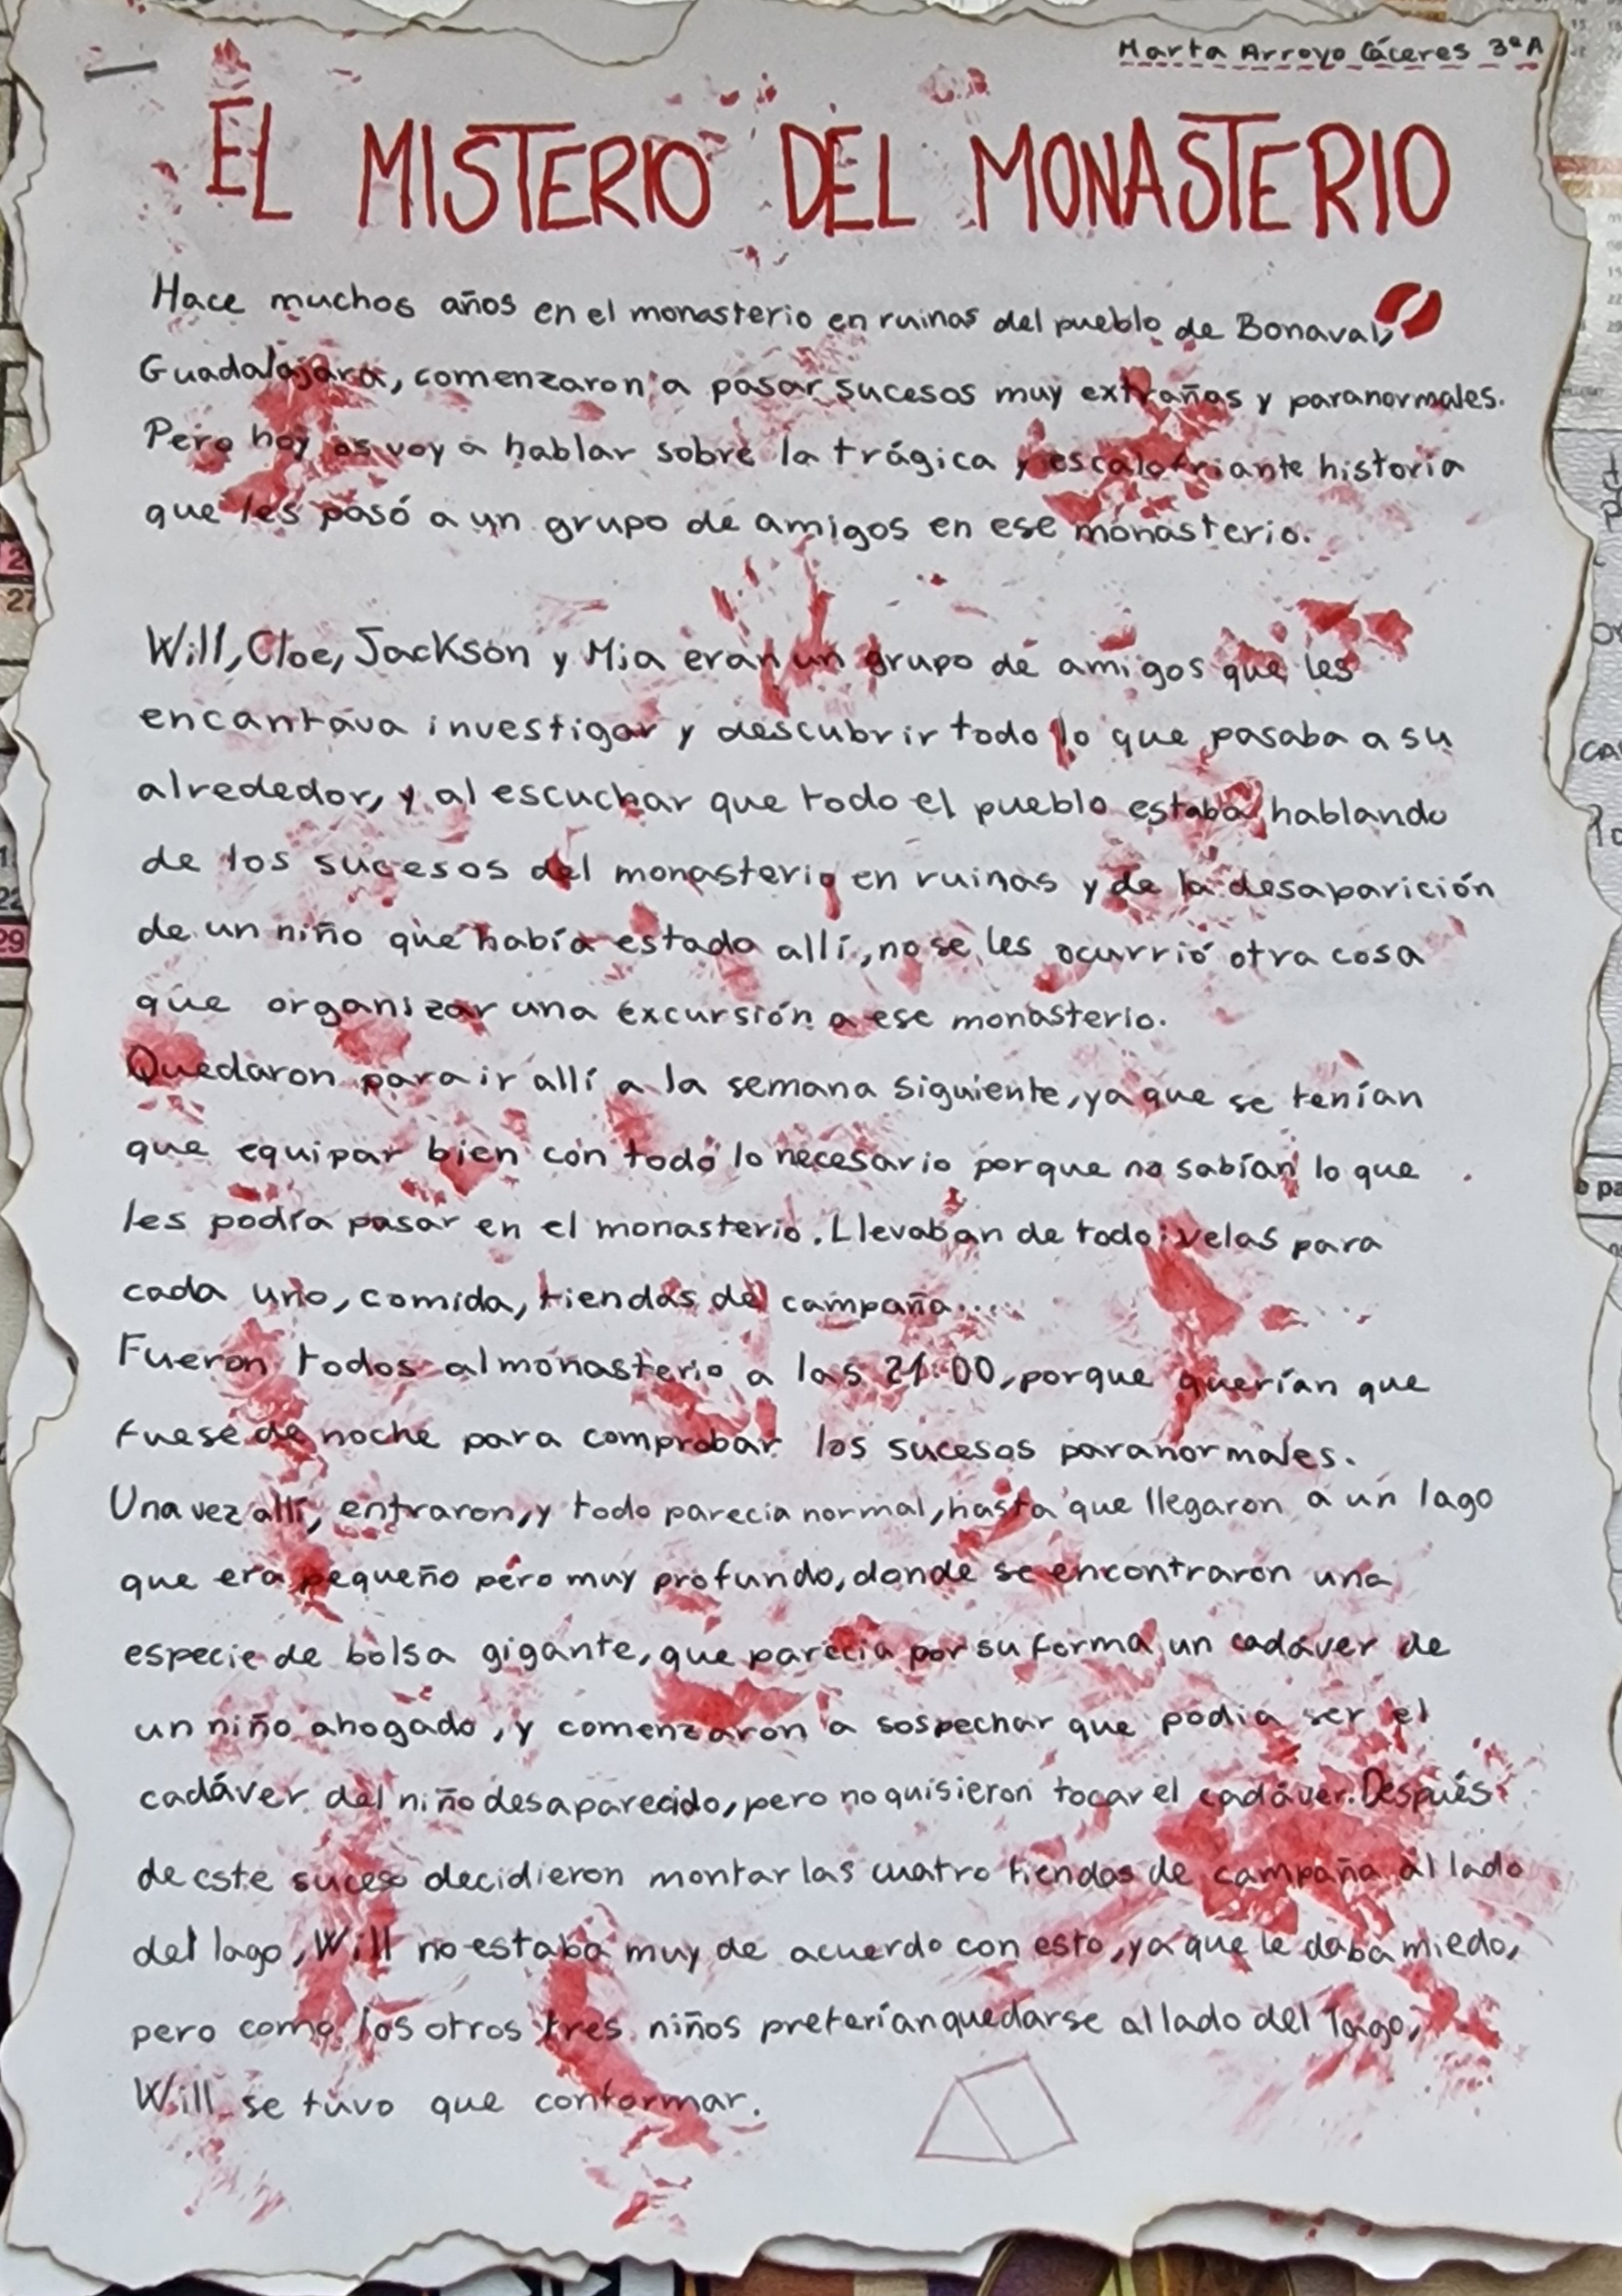 Marta Arroyo Cáceres 3ºA
EL MISTERIO DEL MONASTERIO
Hace muchos años en el monasterio en ruinas del pueblo de Bonaval,
Guadalajara, comenzaron a pasar sucesos muy extraños y paranormales.
Pero hoy os voy a hablar sobre la trágica y escalofriante historia
que les pasó a un grupo de amigos en ese monasterio.
Will, Cloe, Jackson y Mia eran un grupo de amigos que les
encantava investigar y descubrir todo lo que pasaba a su
alrededor, y al escuchar que todo el pueblo estaba hablando
de los sucesos del monasterio en ruinas y de la desaparición
de un niño que había estado allí, no se les ocurrió otra cosa
que organizar una excursión a ese monasterio.
Quedaron para ir allí a la semana siguiente, ya que se tenían
que equipar bien con todo lo necesario porque no sabían lo que
les podía pasar en el monasterio. Llevaban de todo: velas para
cada uno, comida, tiendas de campaña....
Fueron todos al monasterio a las 21:00, porque querían que
fuese de noche para comprobar los sucesos paranormales.
Una vez allí, entraron, y todo parecía normal, hasta que llegaron a un lago
que era pequeño pero muy profundo, donde se encontraron una
especie de bolsa gigante, que parecía por su forma un cadáver de
un niño ahogado, y comenzaron a sospechar que podía ser el
cadáver del niño desaparecido, pero no quisieron tocar el cadáver. Después
de este suceso decidieron montar las cuatro tiendas de campaña al lado
del lago, Will no estaba muy de acuerdo con esto, ya que le daba miedo,
pero como los otros tres niños preferían quedarse al lado del lago,
Will se tuvo que conformar.